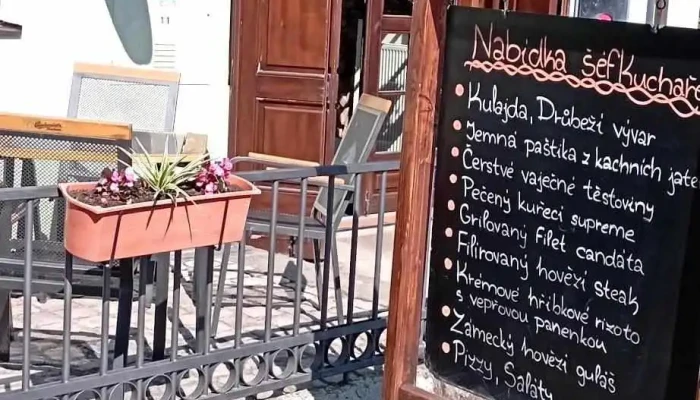 Nabídka šéfkuchaře
Kulajda, Drůbeží vývar
Jemná paštika z kachních jater
Čerstvé vaječné těstoviny
Pečený kuřecí supreme
Grilovaný filet candáta
Filírovaný hovězí steak
Krémové hříbkové rizoto
s vepřovou panenkou
Zámecký hovězí guláš
Pizzy, Saláty